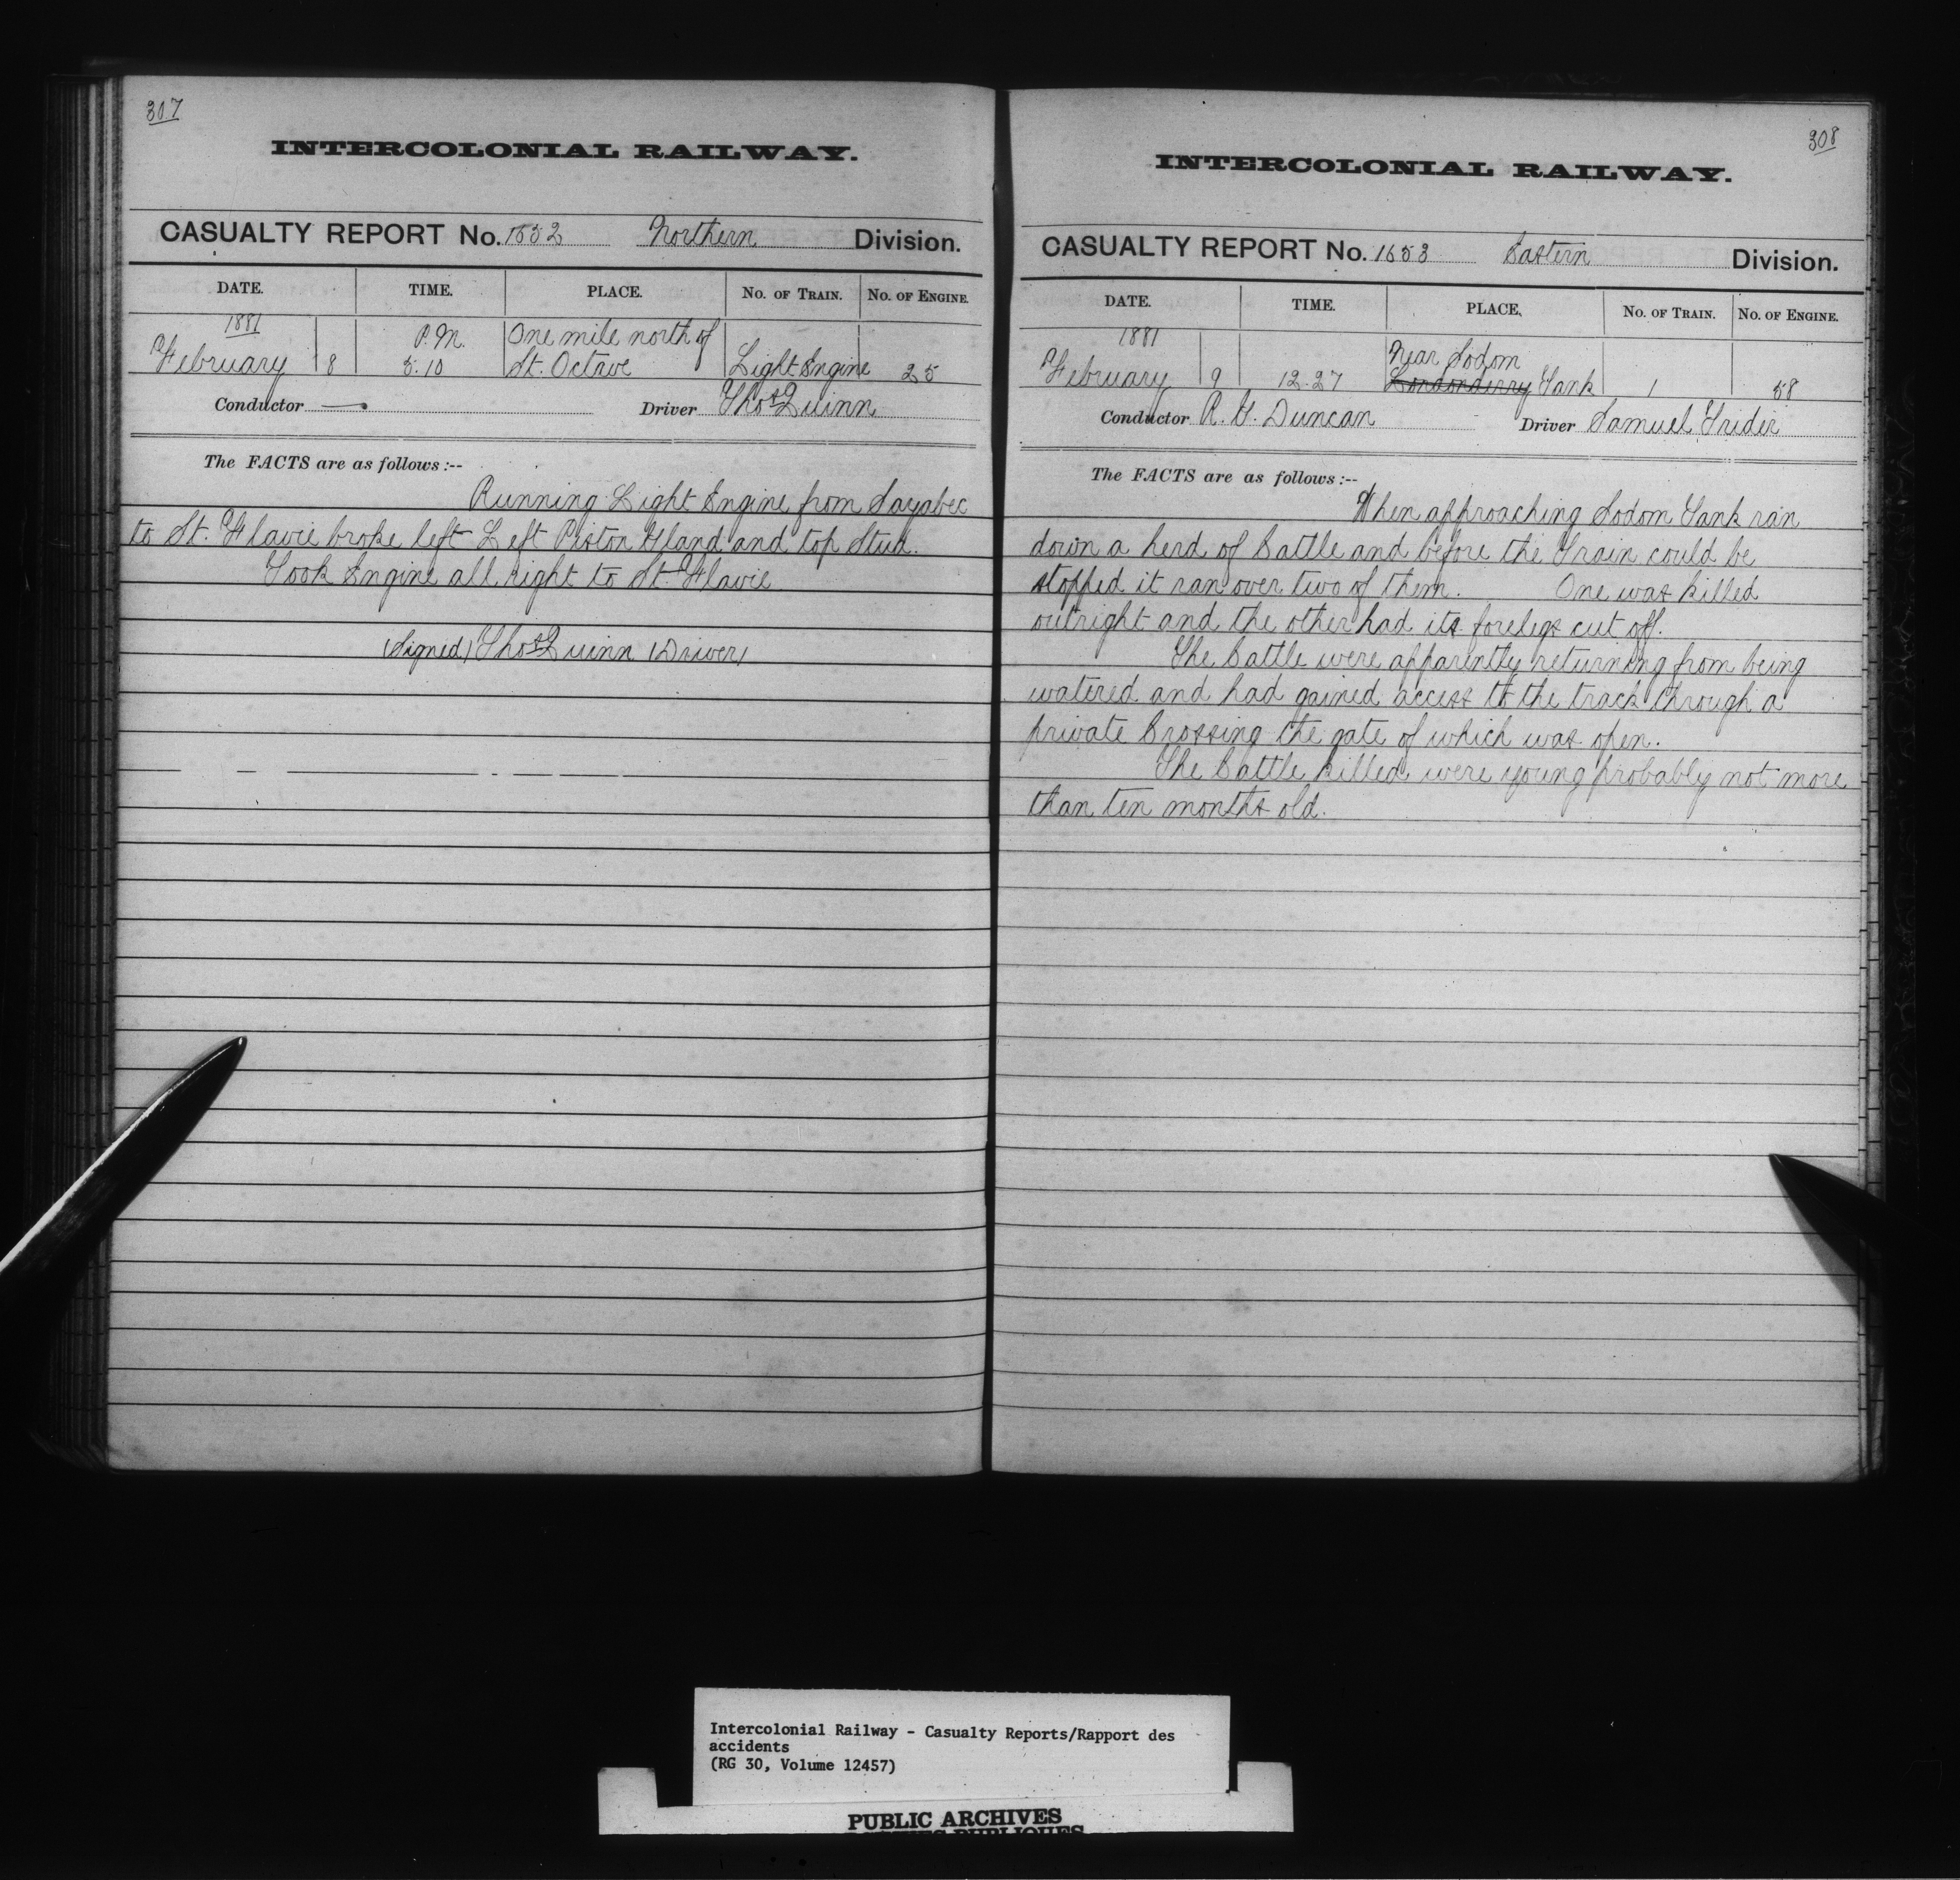 307
INTERCOLONIAL RAILWAY.
CASUALTY REPORT No. 1652 Northern Division.
DATE. TIME. PLACE. No. of Train. No. of Engine.
1881 P.M. One mile north of
February 8 5.10 St. Octave Light Engine 25
Conductor — Driver Thos Quinn
The FACTS are as follows:--
Running Light Engine from Sayabec
to St. Flavie broke left Left Piston Gland and top Stud.
Took Engine all right to St. Flavie
(Signed) Thos Quinn (Driver)
308
INTERCOLONIAL RAILWAY.
CASUALTY REPORT No. 1653 Eastern Division.
DATE. TIME. PLACE. No. of Train. No. of Engine.
1881 Near Sodom
February 9 12.27 Londonderry Tank 1 58
Conductor R. G. Duncan Driver Samuel Trider
The FACTS are as follows:--
When approaching Sodom Tank ran
down a herd of Cattle and before the Train could be
stopped it ran over two of them. One was killed
outright and the other had its forelegs cut off.
The Cattle were apparently returning from being
watered and had gained access to the track through a
private Crossing the gate of which was open.
The Cattle killed were young probably not more
than ten months old.
Intercolonial Railway - Casualty Reports/Rapport des
accidents
(RG 30, Volume 12457)
PUBLIC ARCHIVES